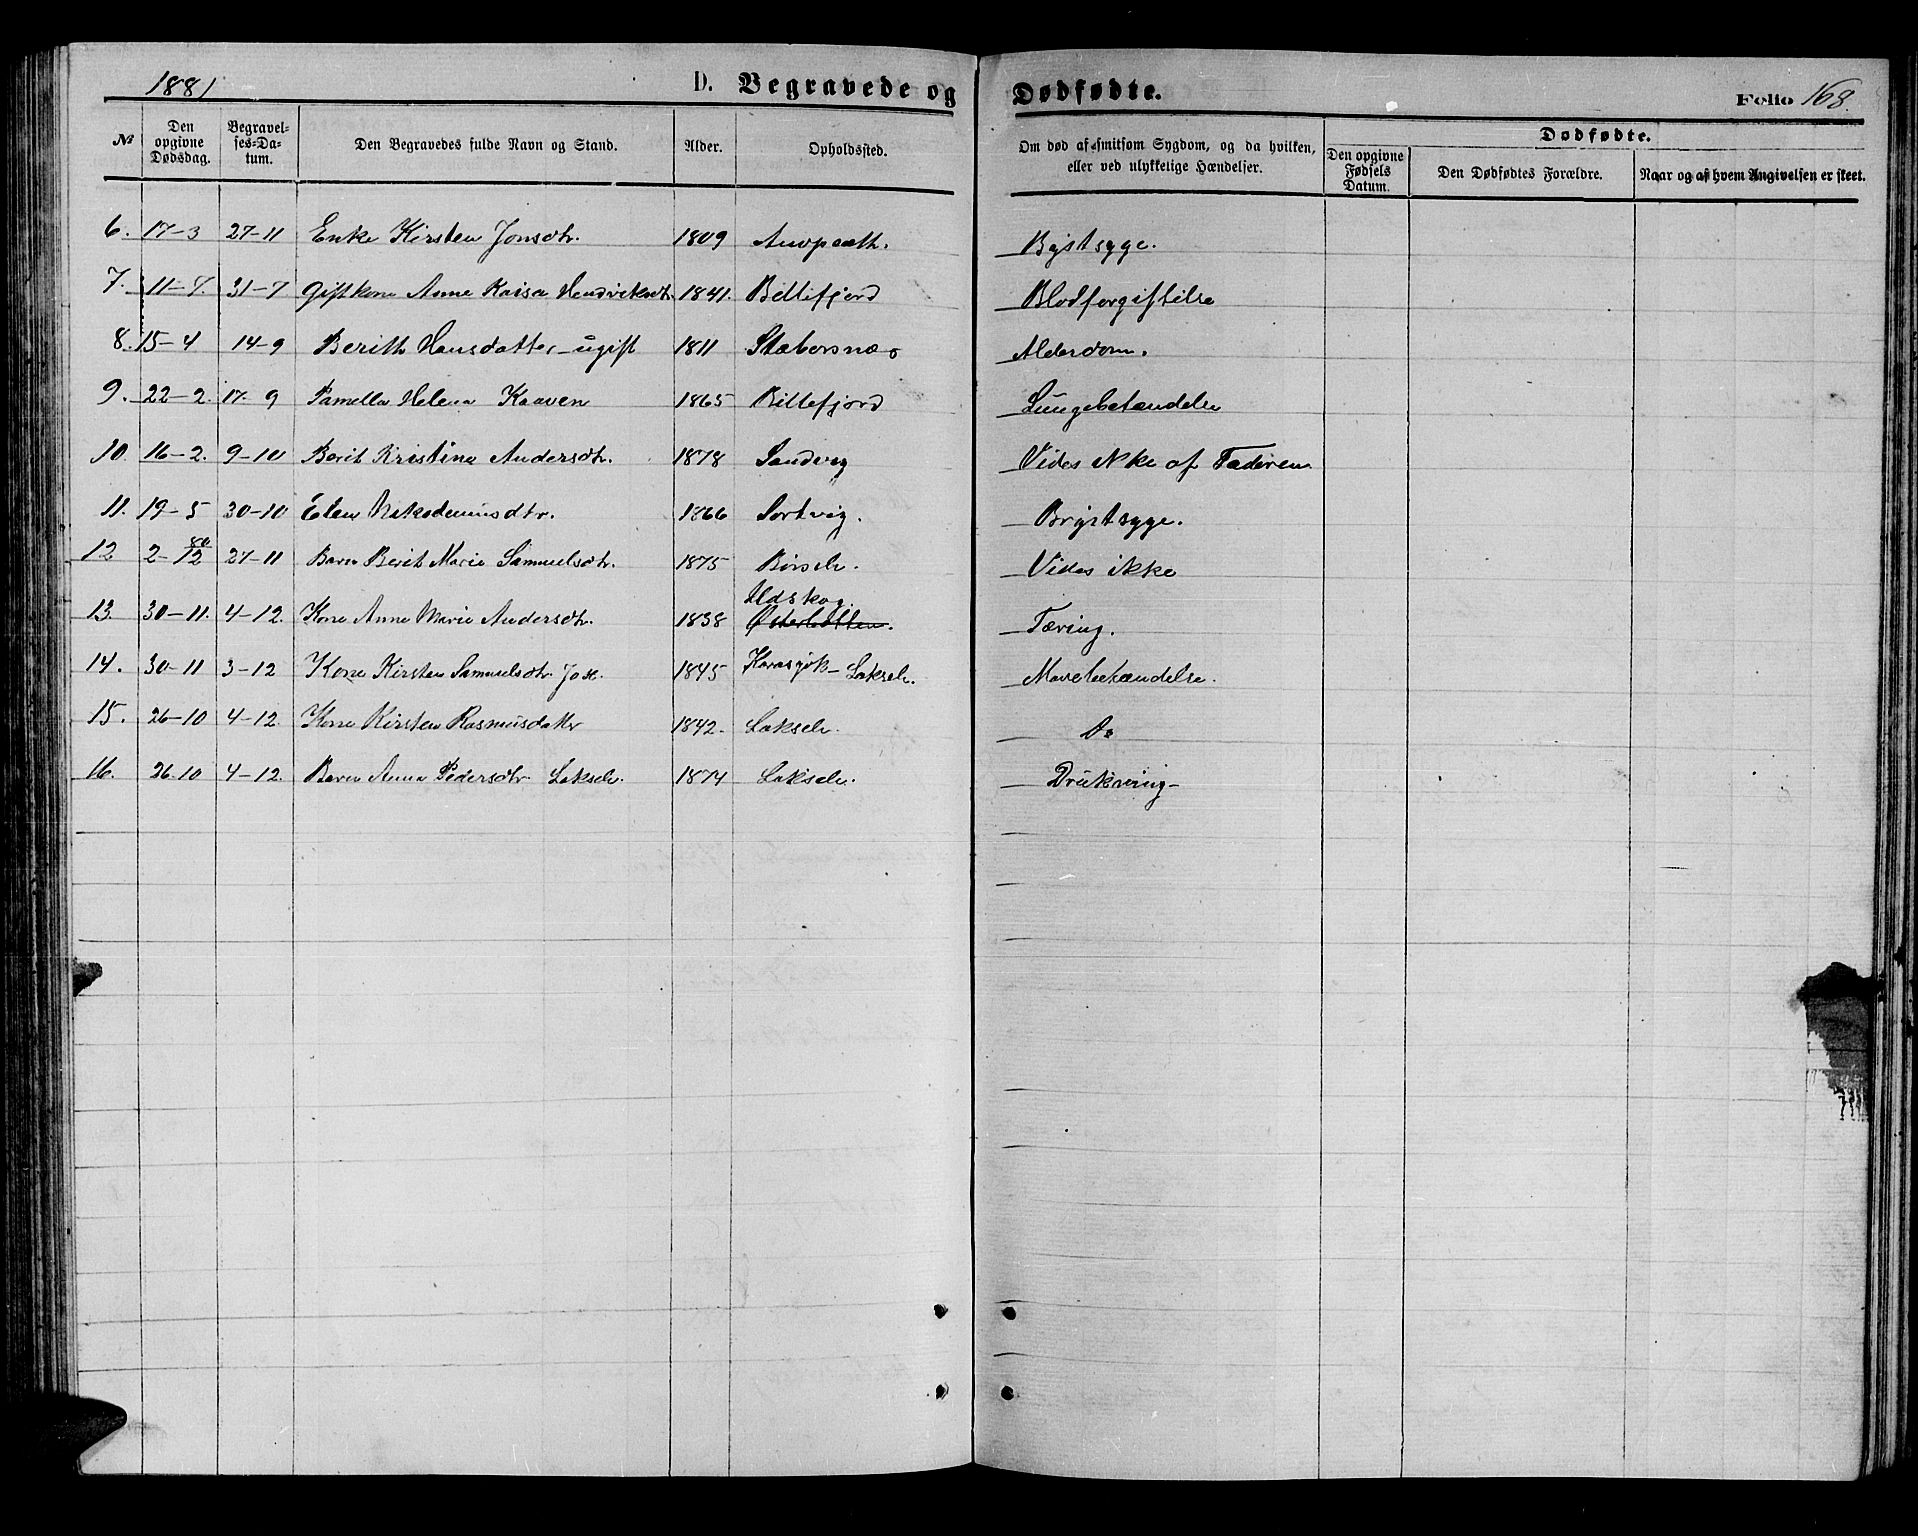 1881 D. Begravede og Dødfødte. Folio 168.
№ Den opgivne Dødsdag. Begravelses-Datum. Den Begravedes fulde Navn og Stand. Alder. Opholdssted. Om død af smitsom Sygdom, og da hvilken, eller ved ulykkelige Hændelser. Dødfødte.
Den opgivne Fødsels Datum. Den Dødfødtes Forældre. Naar og af hvem Angivelsen er skeet.
6. 17-3 27-11 Enke Kirsten Jonsdtr. 1809 Brystsyge.
7. 11-7. 31-7 Giftkone Anne Kaisa Hendriksdtr. 1841. Billefjord Blodforgiftelse
8. 15-4 14-9 Berith Hansdatter - ugift 1811 Stabersnæs Alderdom.
9. 22-2. 17-9 Pamella Helena Kaaven 1865 Billefjord Lungebetændelse
10 16-2. 9-10 Berit Kristina Andersdtr. 1878 Sandvig Vides ikke af Faderen
11. 19-5 30-10 Elen Nikodemusdtr. 1866 Sortvig. Brystsyge.
12 2-12 80 27-11 Barn Berit Marie Samuelsdtr. 1875 Børselv. Vides ikke
13. 30-11. 4-12. Kone Anne Marie Andersdtr. 1838 Udskog. Østerbotten. Tæring.
14. 30-11 3-12 Kone Kirsten Samuelsdtr. 1845 Karasjok - Lakselv. Mavebetændelse.
15. 26-10 4-12. Kone Kirsten Rasmusdatter 1842. Lakselv. Do
16. 26.10 4-12. Barn Anna Pedersdtr. Lakselv. 1874 Lakselv. Drukning -